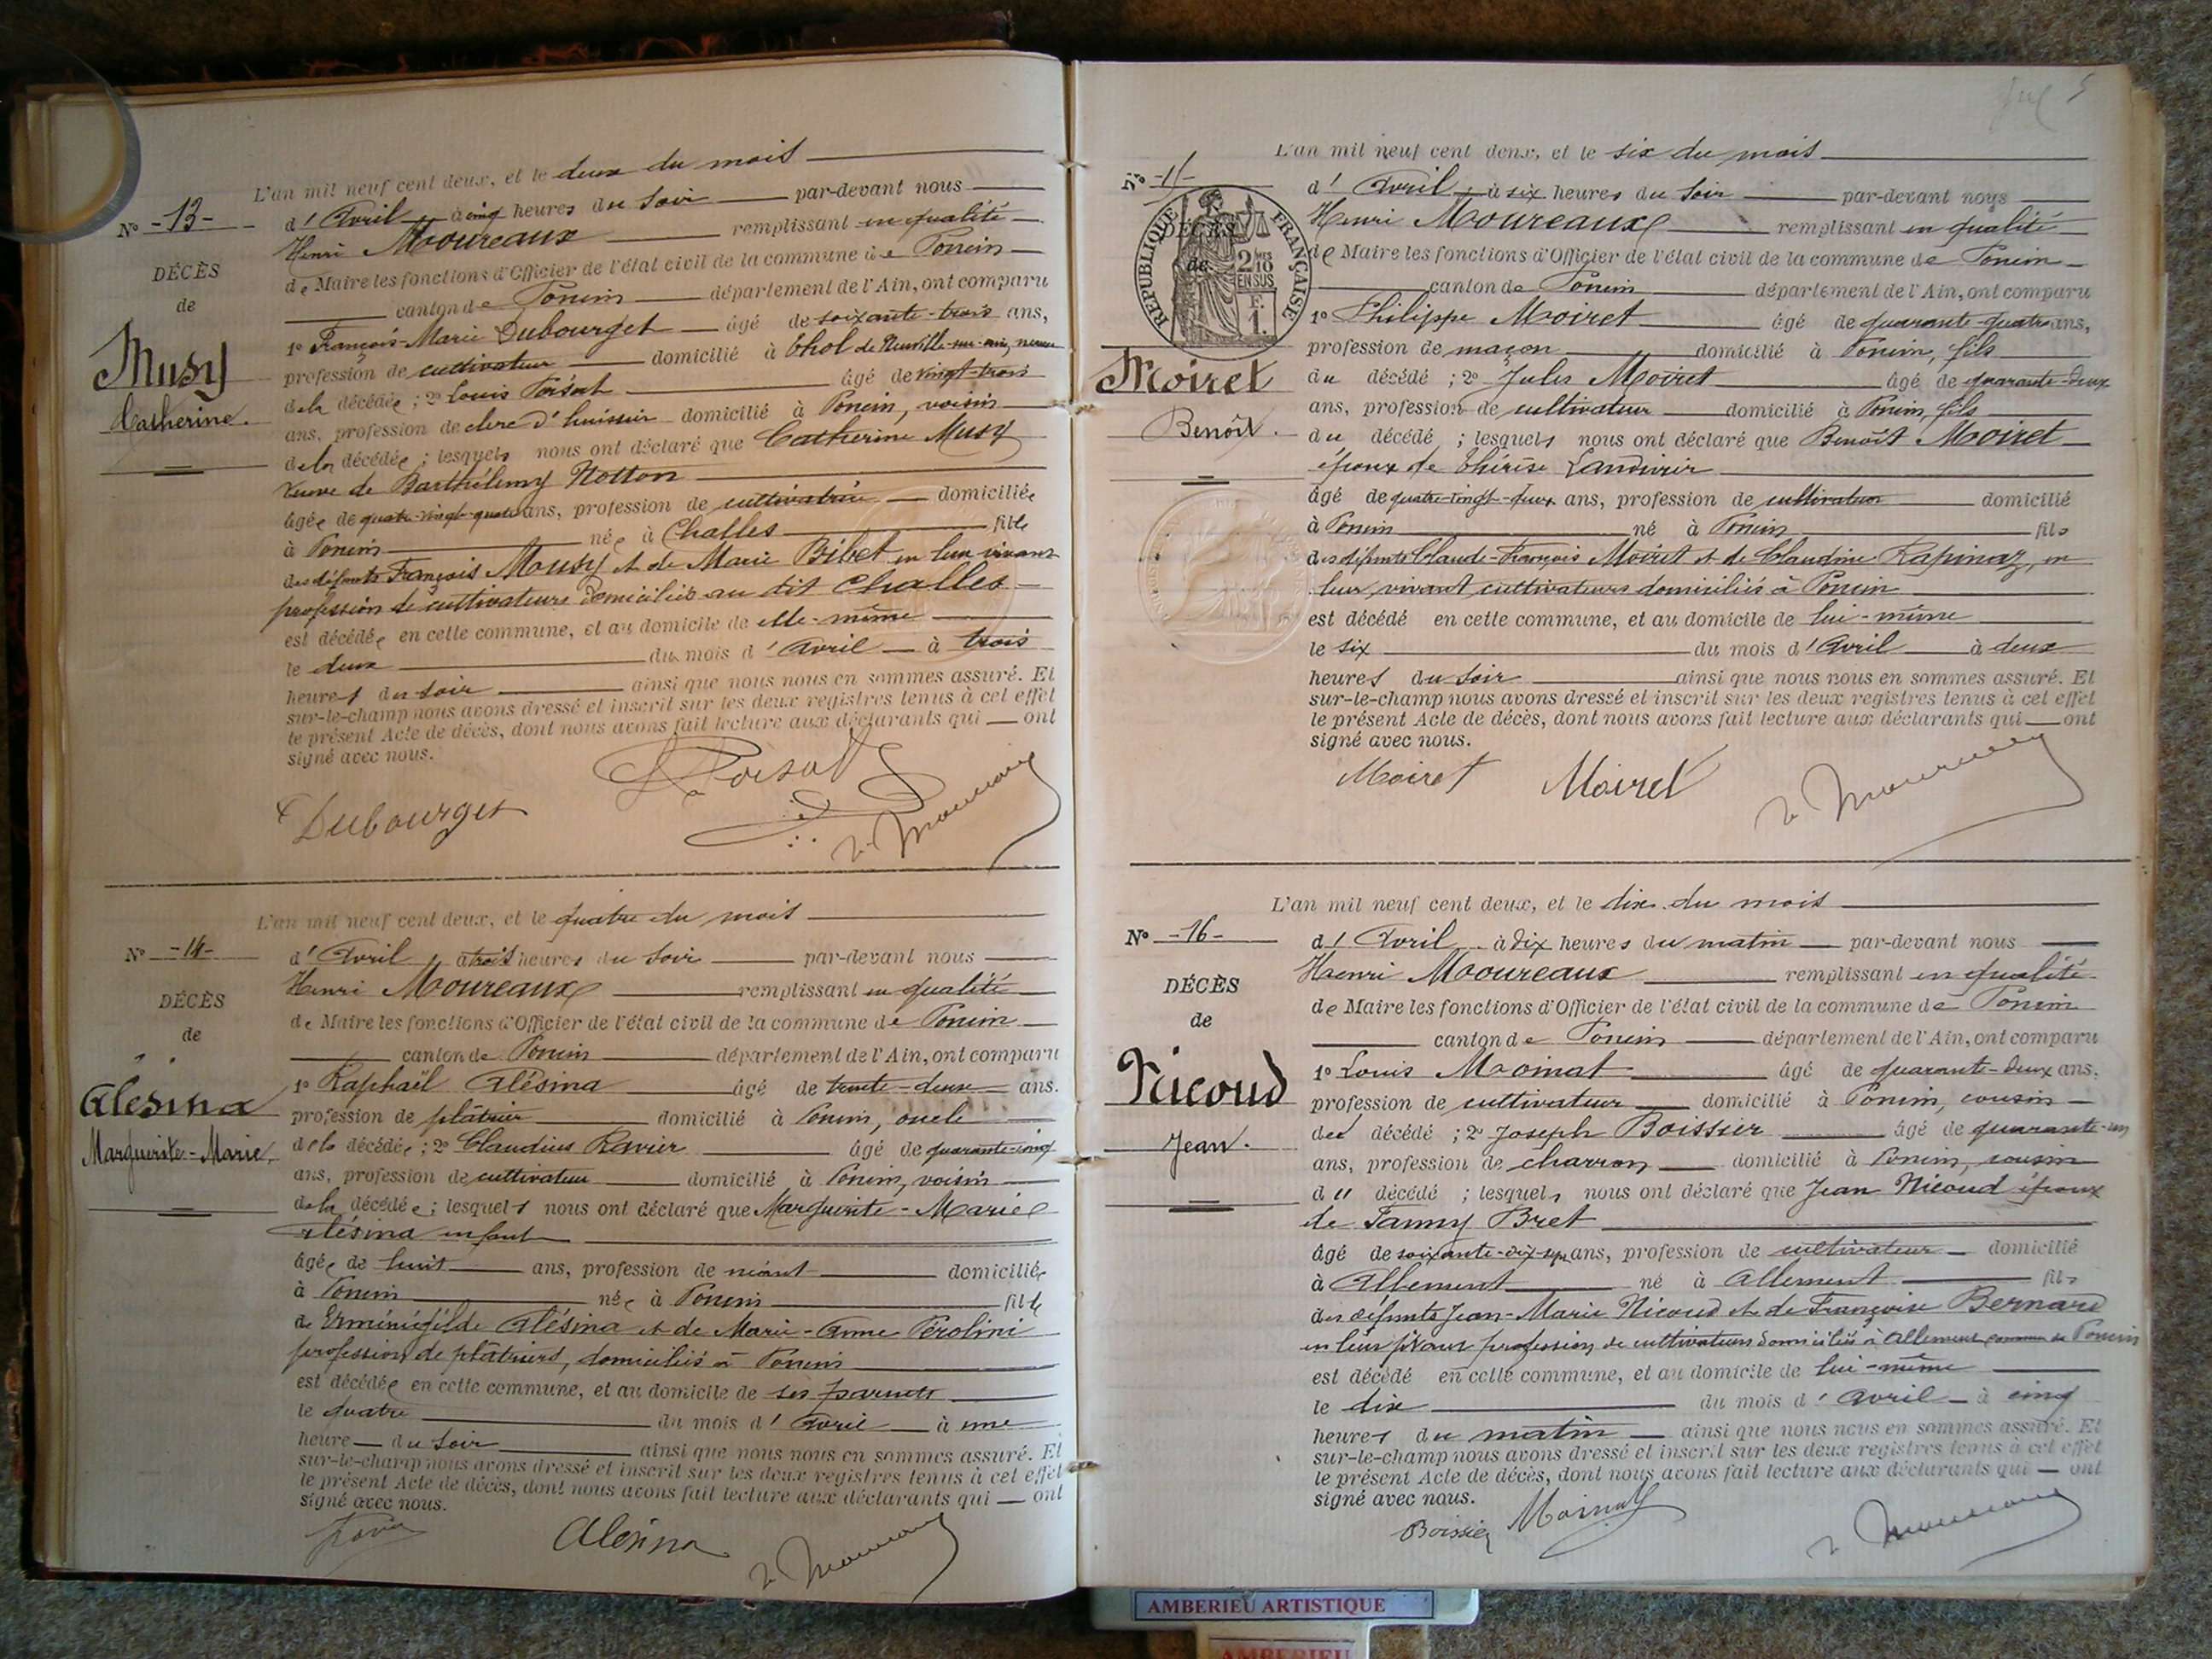 L'an mil neuf cent deux, et le deux du mois
N° -13-
d'Avril à cinq heures du soir par-devant nous
Henri Moureaux remplissant en qualité
DÉCÈS
de Maire les fonctions d'Officier de l'état civil de la commune de Poncin
de
canton de Poncin département de l'Ain, ont comparu
1° François-Marie Dubourget âgé de soixante-trois ans,
Musy
profession de cultivateur domicilié à Thol de Neuville-sur-ain, neveu
de la décédée ; 2° Louis Poisat âgé de vingt-trois
Catherine.
ans, profession de clerc d'huissier domicilié à Poncin, voisin
de la décédée ; lesquels nous ont déclaré que Catherine Musy
veuve de Barthélemy Notton
âgée de quatre-vingt-quatre ans, profession de cultivatrice domiciliée
à Poncin née à Challes fille
des défunts François Mousy et de Marie Bibet en leur vivant
profession de cultivateurs domiciliés au dit Challes
est décédée en cette commune, et au domicile de elle-même
le deux du mois d'Avril à trois
heures du soir ainsi que nous nous en sommes assuré. Et
sur-le-champ nous avons dressé et inscrit sur les deux registres tenus à cet effet
le présent Acte de décès, dont nous avons fait lecture aux déclarants qui ont
signé avec nous.
L Poisat
Dubourget
L'an mil neuf cent deux, et le quatre du mois
N° -14-
d'Avril à trois heures du soir par-devant nous
Henri Moureaux remplissant en qualité
DÉCÈS
de Maire les fonctions d'Officier de l'état civil de la commune de Poncin
de
canton de Poncin département de l'Ain, ont comparu
1° Raphaël Alésina âgé de trente-deux ans.
Alésina
profession de plâtrier domicilié à Poncin, oncle
Marguerite-Marie
de la décédée ; 2° Claudius Ravier âgé de quarante-cinq
ans, profession de cultivateur domicilié à Poncin, voisin
de la décédée ; lesquels nous ont déclaré que Marguerite-Marie
Alésina enfant
âgée de huit ans, profession de néant domiciliée
à Poncin née à Poncin fille
de Erménégilde Alésina et de Marie-Anne Pérolini
profession de plâtriers, domiciliés à Poncin
est décédée en cette commune, et au domicile de ses parents
le quatre du mois d'Avril à une
heure du soir ainsi que nous nous en sommes assuré. Et
sur-le-champ nous avons dressé et inscrit sur les deux registres tenus à cet effet
le présent Acte de décès, dont nous avons fait lecture aux déclarants qui ont
signé avec nous.
Alésina
5
L'an mil neuf cent deux, et le six du mois
N° -15-
d'Avril à six heures du soir par-devant nous
Henri Moureaux remplissant en qualité
RÉPUBLIQUE FRANÇAISE
2/10 EN SUS
F. 1.
DÉCÈS
de Maire les fonctions d'Officier de l'état civil de la commune de Poncin
de
canton de Poncin département de l'Ain, ont comparu
1° Philippe Moiret âgé de quarante-quatre ans,
profession de maçon domicilié à Poncin, fils
Moiret
du décédé ; 2° Jules Moiret âgé de quarante-deux
ans, profession de cultivateur domicilié à Poncin, fils
Benoît.
du décédé ; lesquels nous ont déclaré que Benoît Moiret
époux de Thérèse
âgé de quatre-vingt-deux ans, profession de cultivateur domicilié
à Poncin né à Poncin fils
des défunts Claude-François Moiret et de Claudine Rapinaz, en
leur vivant cultivateurs domiciliés à Poncin
est décédé en cette commune, et au domicile de lui-même
le six du mois d'Avril à deux
heures du soir ainsi que nous nous en sommes assuré. Et
sur-le-champ nous avons dressé et inscrit sur les deux registres tenus à cet effet
le présent Acte de décès, dont nous avons fait lecture aux déclarants qui ont
signé avec nous.
Moiret Moiret
L'an mil neuf cent deux, et le dix du mois
N° -16-
d'Avril à dix heures du matin par-devant nous
Henri Moureaux remplissant en qualité
DÉCÈS
de Maire les fonctions d'Officier de l'état civil de la commune de Poncin
de
canton de Poncin département de l'Ain, ont comparu
1° Louis Moinat âgé de quarante-deux ans.
Nicoud
profession de cultivateur domicilié à Poncin, cousin
Jean.
du décédé ; 2° Joseph Boissier âgé de quarante-un
ans, profession de charron domicilié à Poncin, cousin
du décédé ; lesquels nous ont déclaré que Jean Nicoud époux
de Fanny Bret
âgé de soixante-dix-sept ans, profession de cultivateur domicilié
à Allement né à Allement fils
des défunts Jean-Marie Nicoud et de Françoise Bernard
en leur vivant profession de cultivateurs domiciliés à Allement commune de Poncin
est décédé en cette commune, et au domicile de lui-même
le dix du mois d'Avril à cinq
heures du matin ainsi que nous nous en sommes assuré. Et
sur-le-champ nous avons dressé et inscrit sur les deux registres tenus à cet effet
le présent Acte de décès, dont nous avons fait lecture aux déclarants qui ont
signé avec nous.
Boissier Moinat
AMBERIEU ARTISTIQUE
AMBERIEU